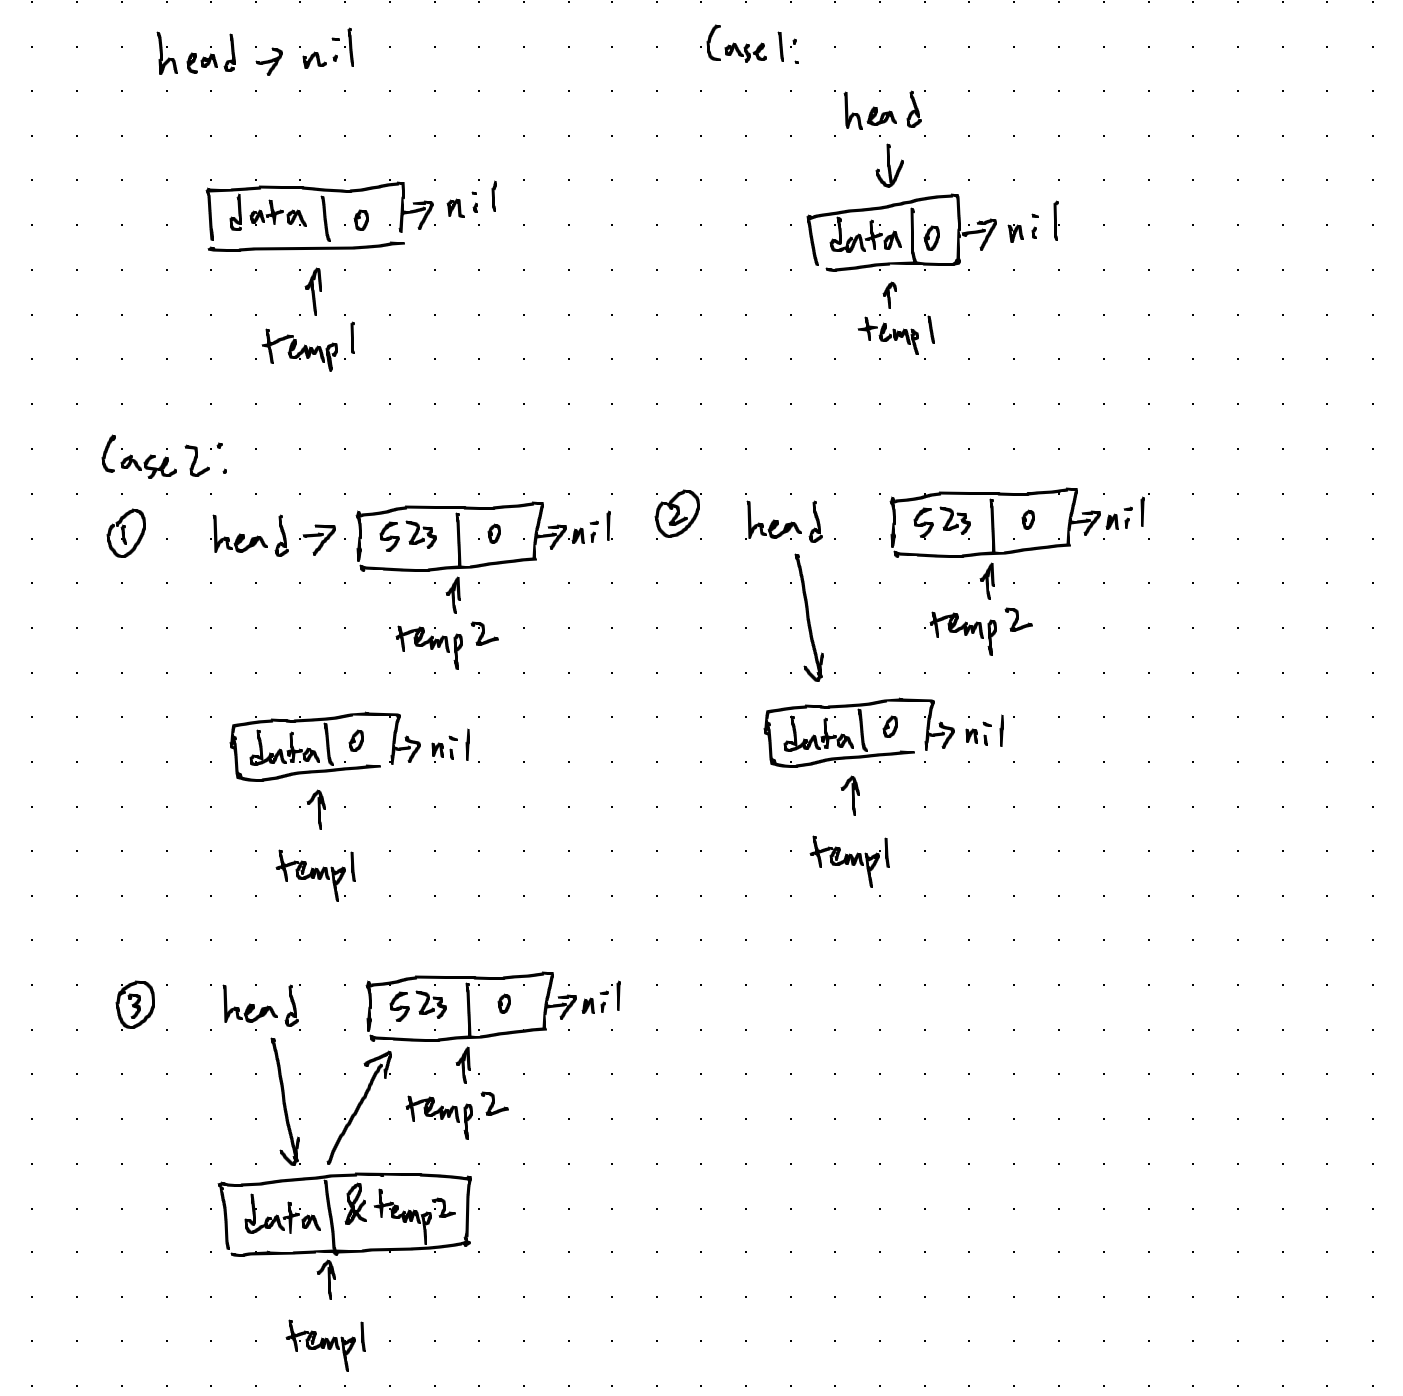 head → nil
data | 0 → nil
↑
temp1
Case 1:
head
↓
data | 0 → nil
↑
temp1
Case 2:
① head → 523 | 0 → nil
↑
temp2
data | 0 → nil
↑
temp1
② head 523 | 0 → nil
↑
temp2
data | 0 → nil
↑
temp1
③ head 523 | 0 → nil
↑
temp2
data | &temp2
↑
temp1